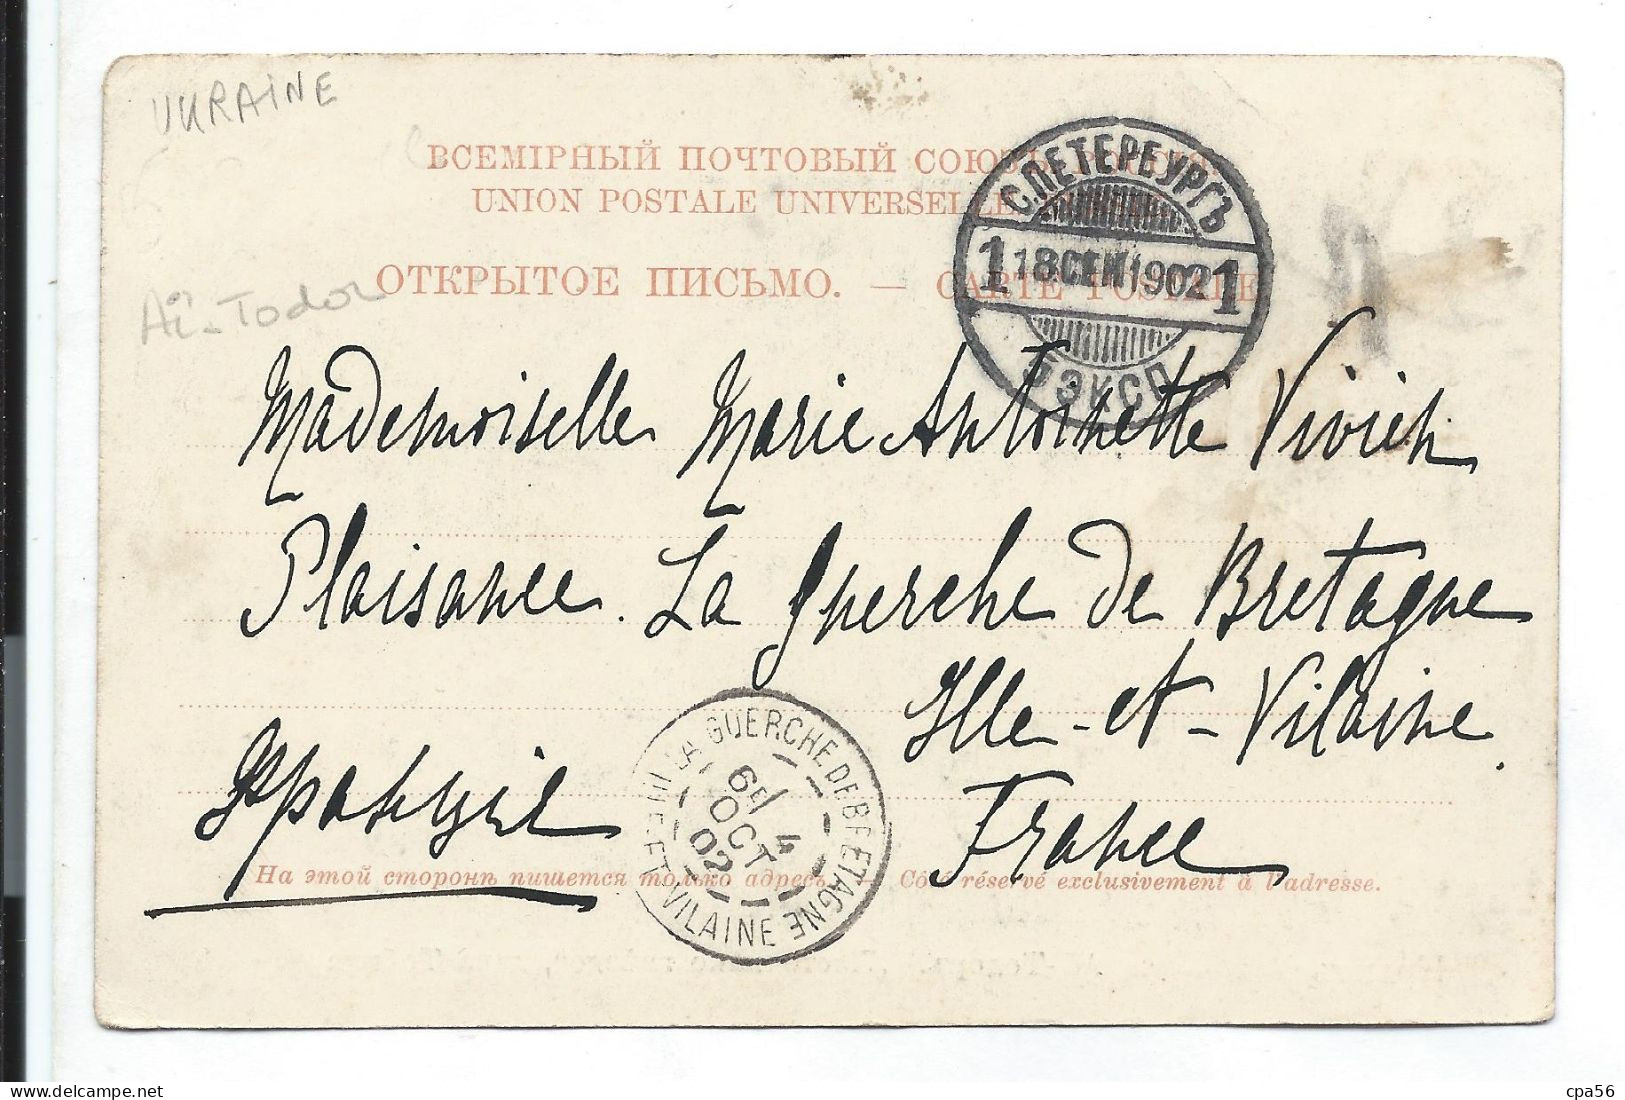 UKRAINE
ВСЕМІРНЫЙ ПОЧТОВЫЙ СОЮЗЪ.
UNION POSTALE UNIVERSELLE
Аї-Todor
ОТКРЫТОЕ ПИСЬМО. — CARTE POSTALE
С.ПЕТЕРБУРГЪ
1 18 СЕН 1902 1
ЭКСП.
Mademoiselle Marie Antoinette Vivien
Plaisance. La Guerche de Bretagne
Ille-et-Vilaine.
Франція
France
LA GUERCHE DE BRETAGNE
4 OCT 02
ET VILAINE
На этой сторонѣ пишется только адресъ. — Côté réservé exclusivement à l'adresse.
cpa56